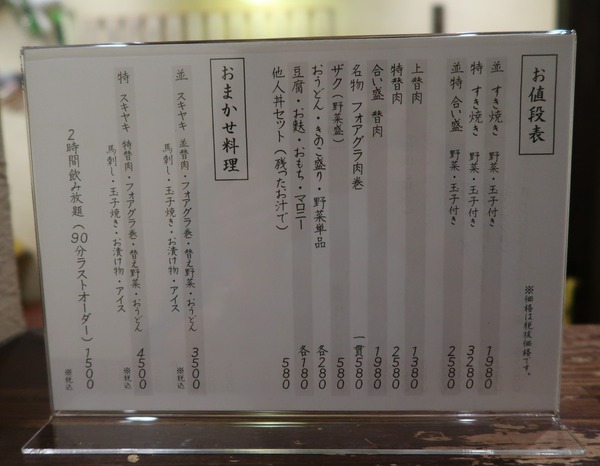 お値段表
※価格は税抜価格です。
並 すき焼き 野菜・玉子付き 1980
特 すき焼き 野菜・玉子付き 3280
並特 合い盛 野菜・玉子付き 2580
上替肉 1380
特替肉 2580
合い盛 替肉 1980
名物 フォアグラ肉巻 一貫580
ザク(野菜盛) 580
おうどん・きのこ盛り・野菜単品 各280
豆腐・お麩・おもち・マロニー 各180
他人丼セット(残ったお汁で) 580
おまかせ料理
並 スキヤキ 並替肉・フォアグラ巻・替え野菜・おうどん 3500
馬刺し・玉子焼き・お漬け物・アイス ※税込
特 スキヤキ 特替肉・フォアグラ巻・替え野菜・おうどん 4500
馬刺し・玉子焼き・お漬け物・アイス ※税込
2時間飲み放題(90分ラストオーダー) 1500
※税込